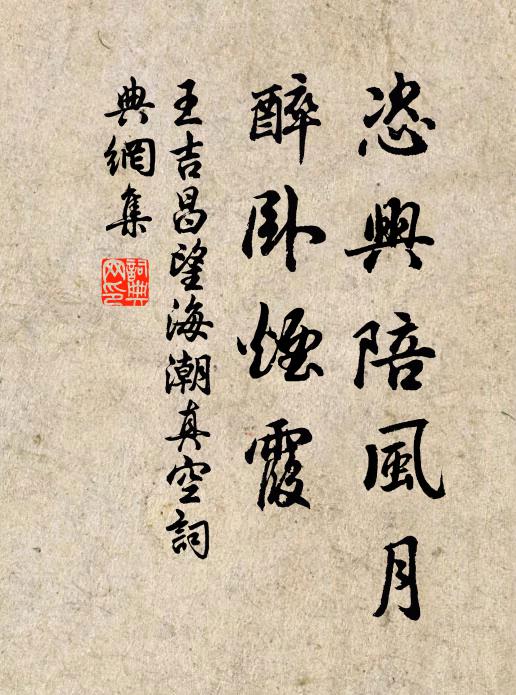 恣興陪風月
醉卧煙霞
王吉昌望海潮真空詞
典網集
詞典网印